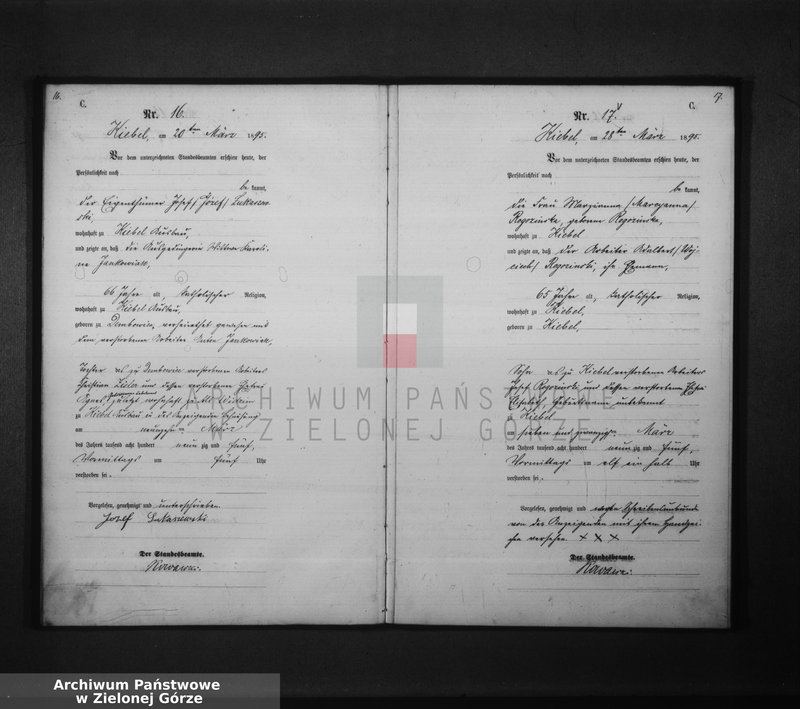 16.
C.
Nr. 16.
Kiebel, am 20ten März 1895.
Vor dem unterzeichneten Standesbeamten erschien heute, der
Persönlichkeit nach
be kannt,
der Eigenthümer Josef /Józef/ Lukaszew-
ski,
wohnhaft zu Kiebel Ausbau,
und zeigte an, daß die Wittwe Karoli-
ne Jankowiak,
66 Jahre alt, katholischer Religion,
wohnhaft zu Kiebel Ausbau,
geboren zu verheirathet gewesen mit
dem verstorbenen Arbeiter Jankowiak,
Tochter des zu verstorbenen Arbeiters
Christian und dessen verstorbenen Ehefrau
Agnes
zu Kiebel Ausbau in des Anzeigenden Behausung
am neunzehnten März
des Jahres tausend acht hundert neun zig und fünf,
Vormittags um fünf Uhr
verstorben sei.
Vorgelesen, genehmigt und unterschrieben.
Jozef Lukaszewski
Der Standesbeamte.
17.
C.
Nr. 17.
Kiebel, am 28ten März 1895.
Vor dem unterzeichneten Standesbeamten erschien heute, der
Persönlichkeit nach
be kannt,
die Frau Marzianna /Maryanna/
Rogozinska, geborene Rogozinska,
wohnhaft zu Kiebel
und zeigte an, daß der Arbeiter Adalbert /Woj-
ciech/ Rogozinski, ihr Ehemann,
65 Jahre alt, katholischer Religion,
wohnhaft zu Kiebel,
geboren zu Kiebel,
Sohn des zu Kiebel verstorbenen Arbeiters
Josef Rogozinski und dessen verstorbenen Ehefrau
Geburtsname unbekannt
zu Kiebel
am sieben und zwanzigsten März
des Jahres tausend acht hundert neun zig und fünf,
Vormittags um elf ein halb Uhr
verstorben sei.
Vorgelesen, genehmigt und wegen Schreibensunkunde
von der Anzeigenden mit ihrem Handzei-
chen versehen. + + +
Der Standesbeamte.
ARCHIWUM PAŃSTWOWE
W ZIELONEJ GÓRZE
Archiwum Państwowe
w Zielonej Górze